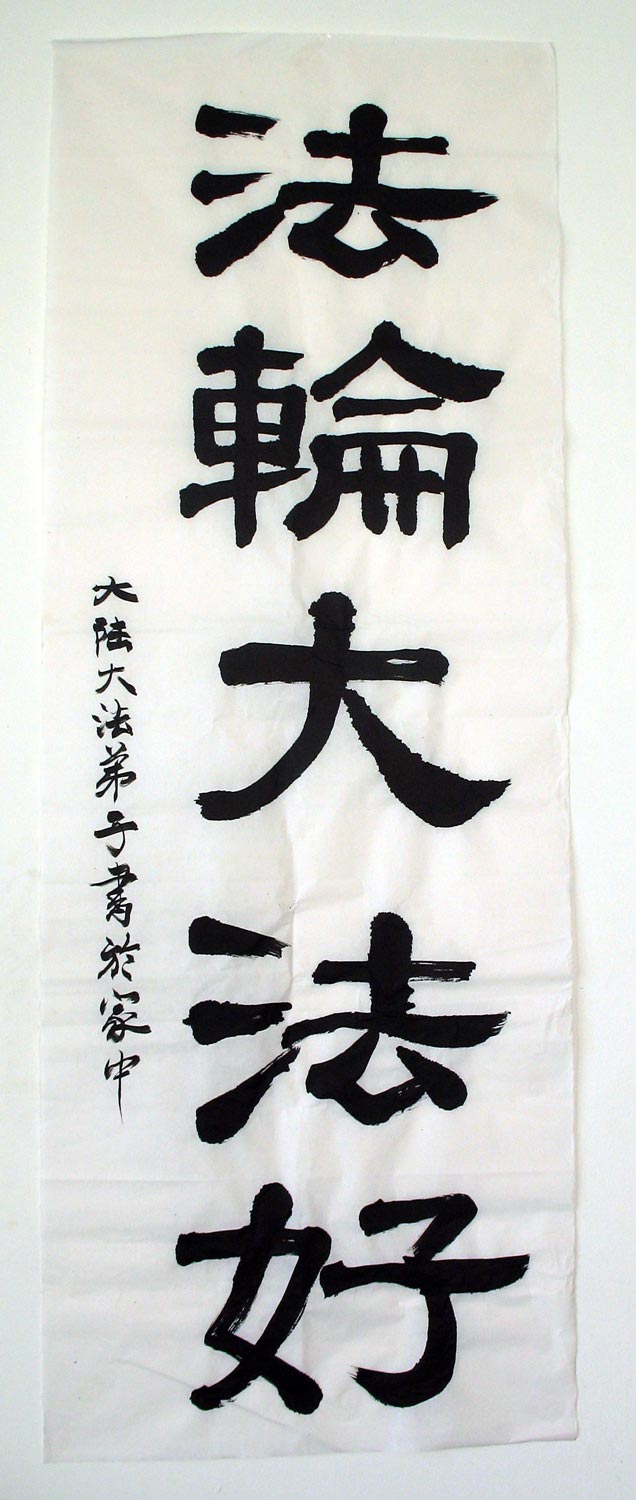 法輪大法好
大陸大法弟子書於家中